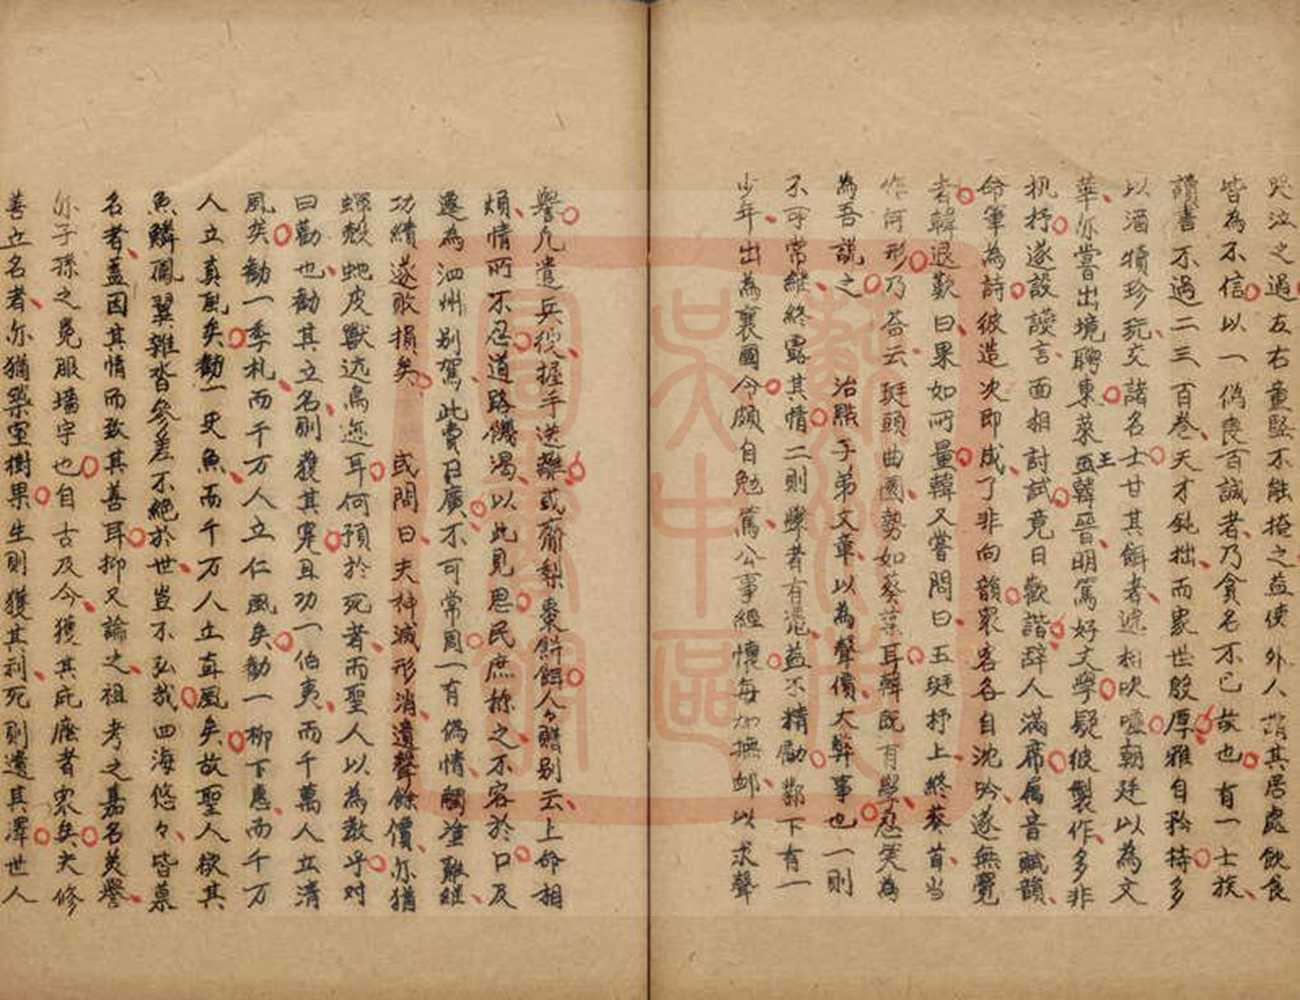 哭泣之過左右童豎不能掩之益使外人謂其居處飲食
皆為不信以一偽喪百誠者乃貪名不已故也有一士族
讀書不過二三百卷天才鈍拙而家世殷厚雅自矜持多
以酒犢珍玩交諸名士甘其餌者遞相吹噓朝廷以為文
華亦嘗出境聘東萊王韓晉明篤好文學疑彼製作多非
機杼遂設讌言面相討試竟日歡諧辭人滿席屬音賦韻
命筆為詩彼造次即成了非向韻眾客各自沈吟遂無覺
者韓退歎曰果如所量韓又嘗問曰玉珽杼上終葵首當
作何形乃荅云珽頭曲圜勢如葵葉耳韓既有學忍笑為
為吾說之 治點子弟文章以為聲價大弊事也一則
不可常繼終露其情二則學者有憑益不精勵鄴下有一
少年出為襄國令頗自勉篤公事經懷每加撫卹以求聲
譽凡遣兵役握手送離或齎梨棗餅餌人々贈别云上命相
煩情所不忍道路饑渴以此見思民庶稱之不容於口及
遷為泗州别駕此費日廣不可常周一有偽情觸塗難繼
功績遂敗損矣 或問曰夫神滅形消遺聲餘價亦猶
蟬殼虵皮獸迒鳥迹耳何預於死者而聖人以為教乎對
曰勸也勸其立名則獲其寔且功一伯夷而千萬人立清
風矣勸一季札而千万人立仁風矣勸一柳下惠而千万
人立真風矣勸一史魚而千万人立直風矣故聖人欲其
魚鱗鳳翼雜沓參差不絕於世豈不弘哉四海悠々皆慕
名者蓋因其情而致其善耳抑又論之祖考之嘉名美譽
亦子孫之冕服墻宇也自古及今獲其庇廕者衆矣夫修
善立名者亦猶築室樹果生則獲其利死則遺其澤世人